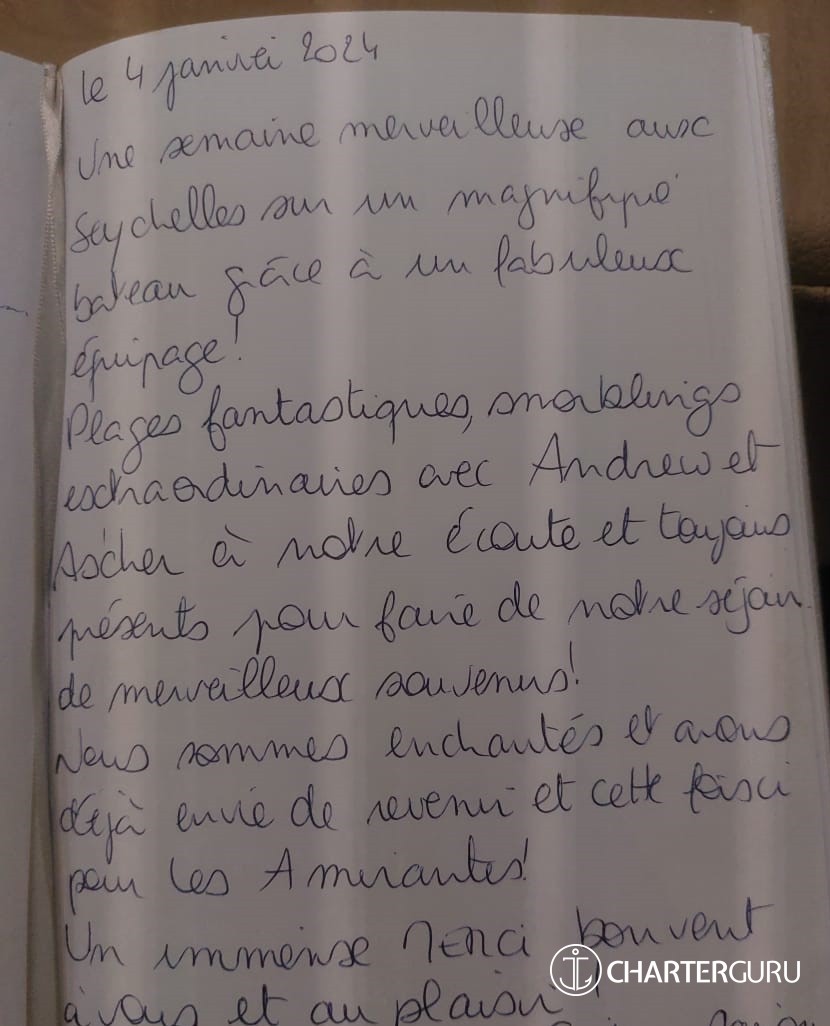 le 4 janvier 2024
Une semaine merveilleuse aux
Seychelles sur un magnifique
bateau grâce à un fabuleux
équipage!
Plages fantastiques, snorklings
extraordinaires avec Andrew et
Ascher à notre écoute et toujours
présents pour faire de notre séjour
de merveilleux souvenirs!
Nous sommes enchantés et avons
déjà envie de revenir et cette fois ci
pour les Amirantes!
Un immense merci bon vent
à vous et au plaisir!
CHARTERGURU